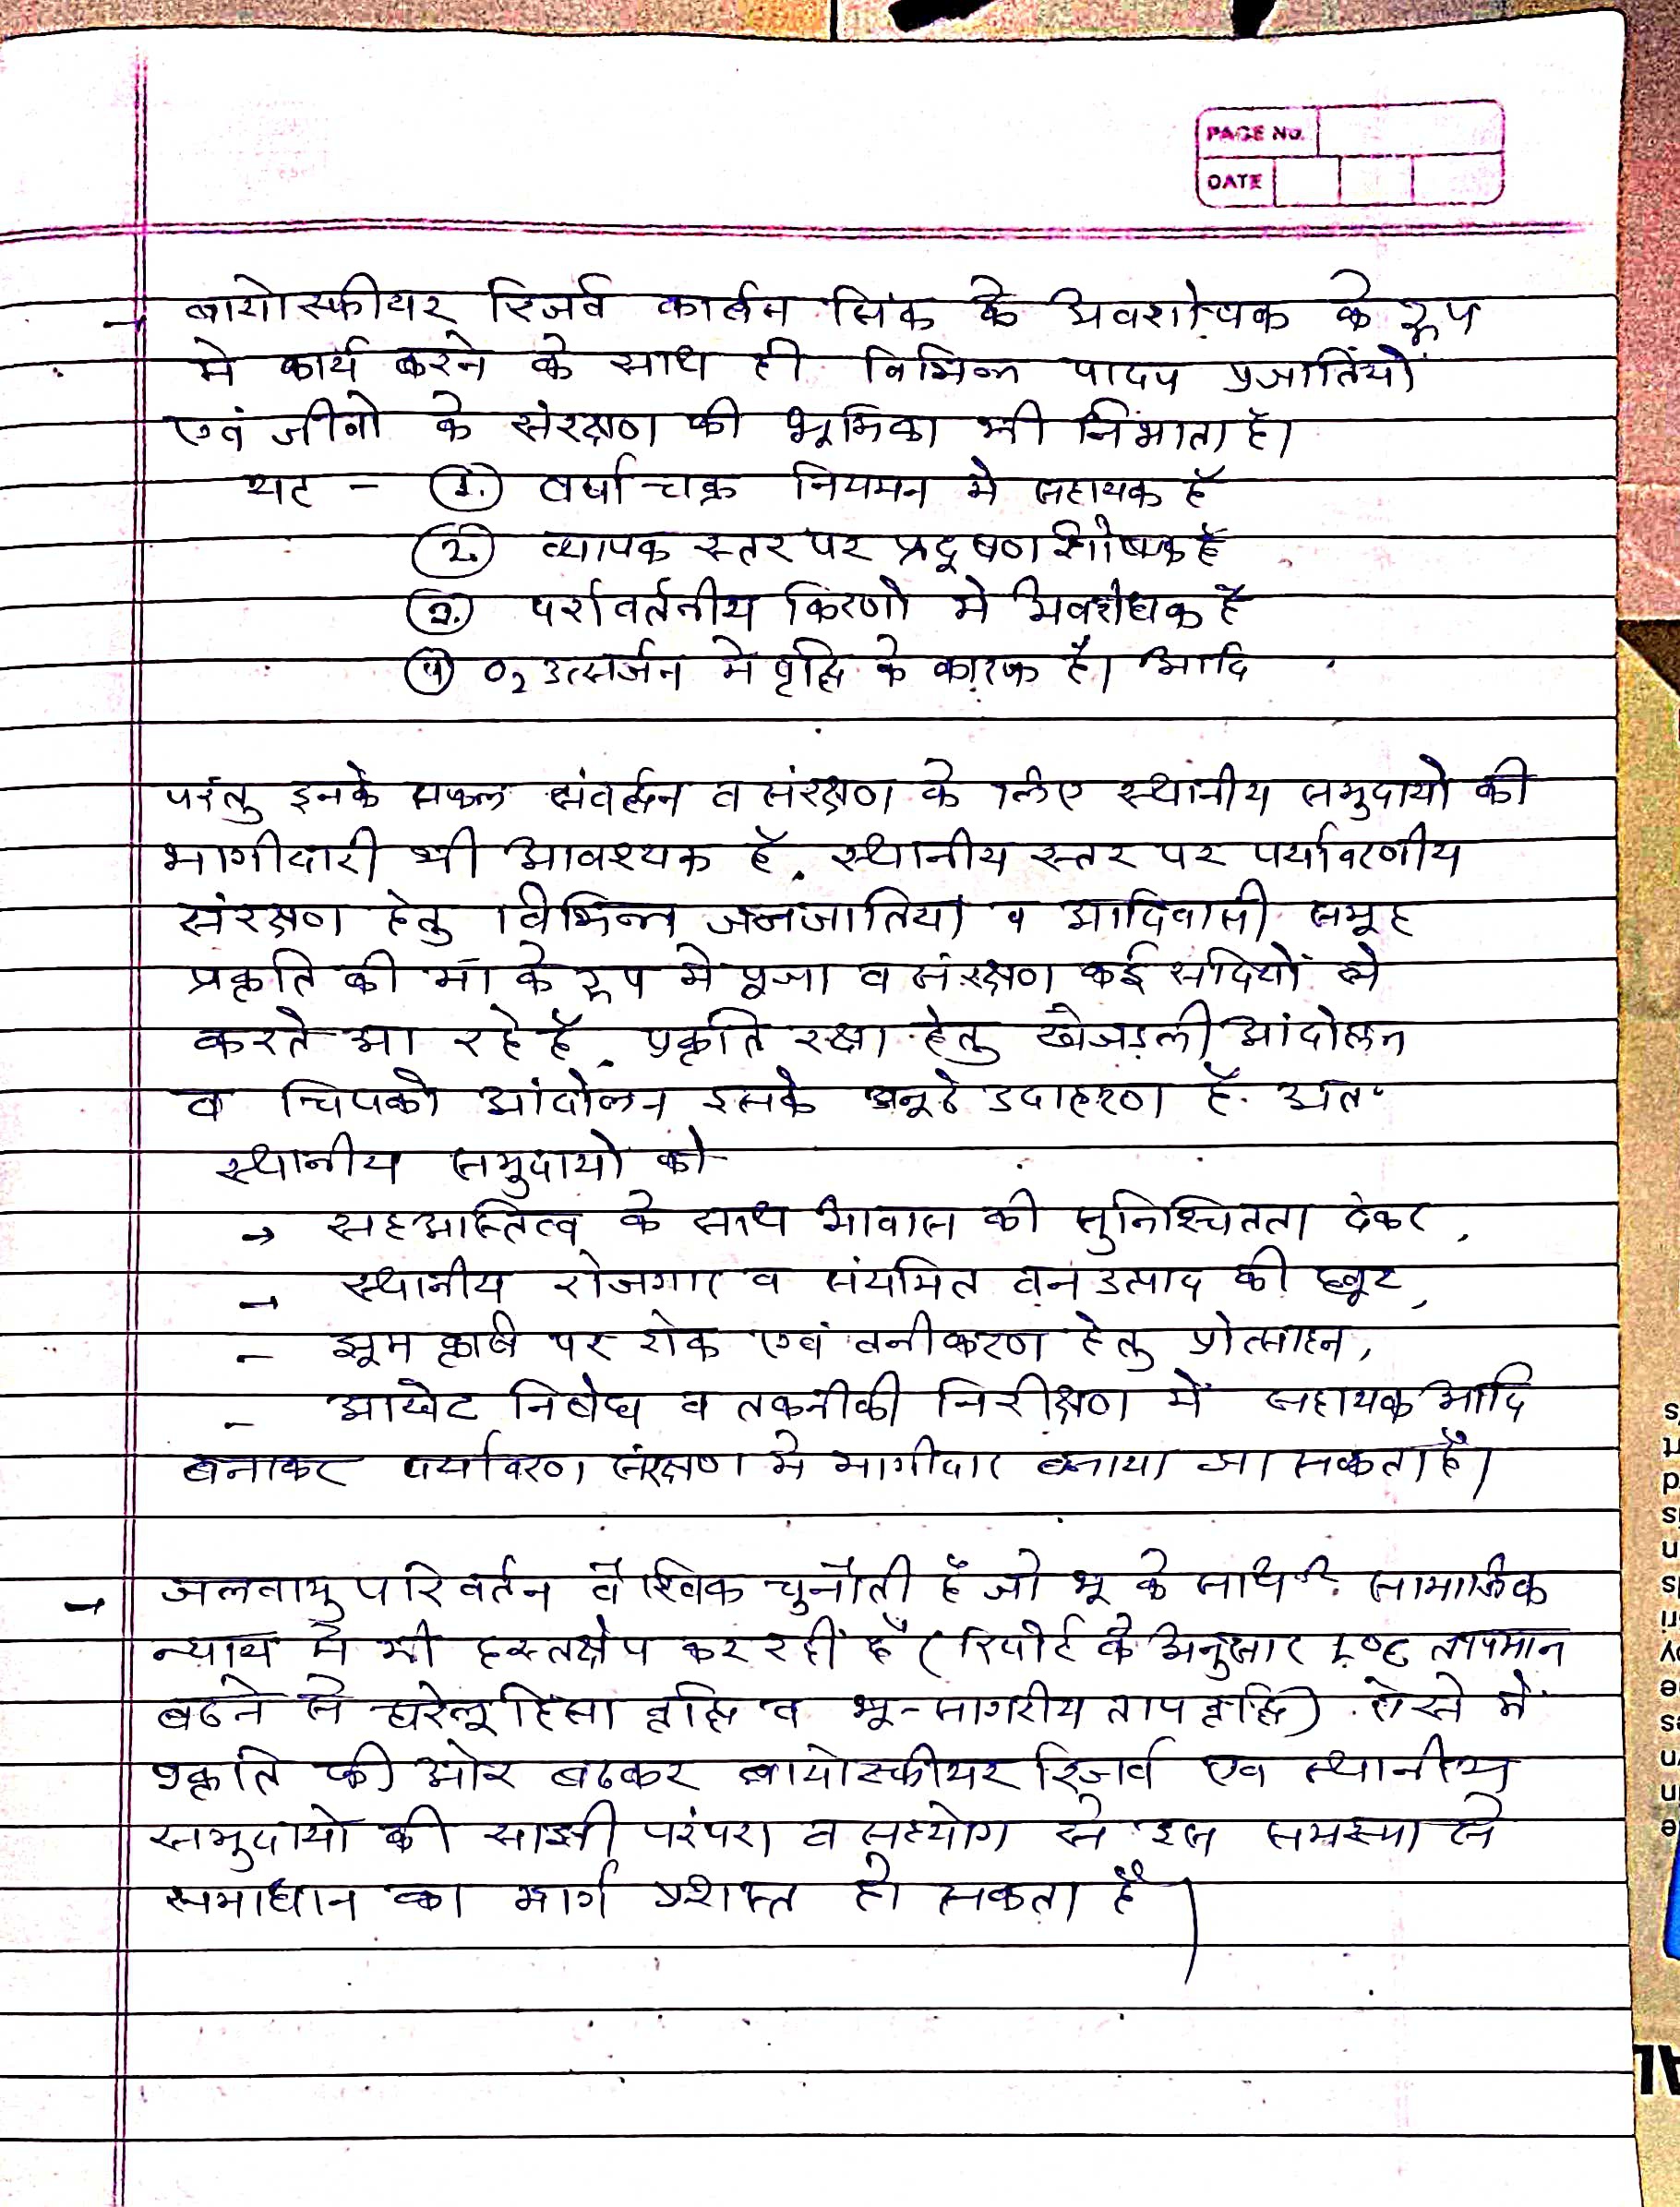 PAGE NO.
DATE
→ बायोस्फीयर रिजर्व कार्बन सिंक के अवशोषक के रूप
मे कार्य करने के साथ ही विभिन्न पादप प्रजातियों
एवं जीवो के संरक्षण की भूमिका भी निभाता है।
यह - 1. वर्षा चक्र नियमन मे सहायक है
2. व्यापक स्तर पर प्रदूषण शोषक है
3. परावर्तनीय किरणो मे अवरोधक है
4 O2 उत्सर्जन मे वृद्धि के कारक है। आदि
परंतु इनके सफल संवर्द्धन व संरक्षण के लिए स्थानीय समुदायो की
भागीदारी भी आवश्यक है. स्थानीय स्तर पर पर्यावरणीय
संरक्षण हेतु विभिन्न जनजातिया व आदिवासी समूह
प्रकृति की माँ के रूप मे पूजा व संरक्षण कई सदियों से
करते आ रहे है. प्रकृति रक्षा हेतु खेजड़ली आंदोलन
व चिपको आंदोलन इसके अनूठे उदाहरण है. अतः
स्थानीय समुदायो को
→ सहअस्तित्व के साथ आवास की सुनिश्चितता देकर,
→ स्थानीय रोजगार व संयमित वन उत्पाद की छूट,
- झूम कृषि पर रोक एवं वनीकरण हेतु प्रोत्साहन,
- आखेट निषेध व तकनीकी निरीक्षण में सहायक आदि
बनाकर पर्यावरण संरक्षण मे भागीदार बनाया जा सकता है।
→ जलवायु परिवर्तन वैश्विक चुनौती है जो भू के साथ ही सामाजिक
न्याय मे भी हस्तक्षेप कर रही है (रिपोर्ट के अनुसार 1°C तापमान
बढने से घरेलू हिंसा वृद्धि व भू-सागरीय ताप वृद्धि) ऐसे मे
प्रकृति की ओर बढकर बायोस्फीयर रिजर्व एव स्थानीय
समुदायो की साझी परंपरा व सहयोग से इस समस्या से
समाधान का मार्ग प्रशस्त हो सकता है।